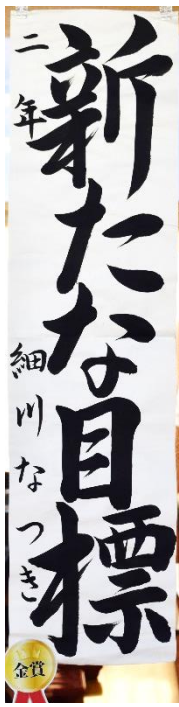 新たな目標
二年 細川なつき
金賞